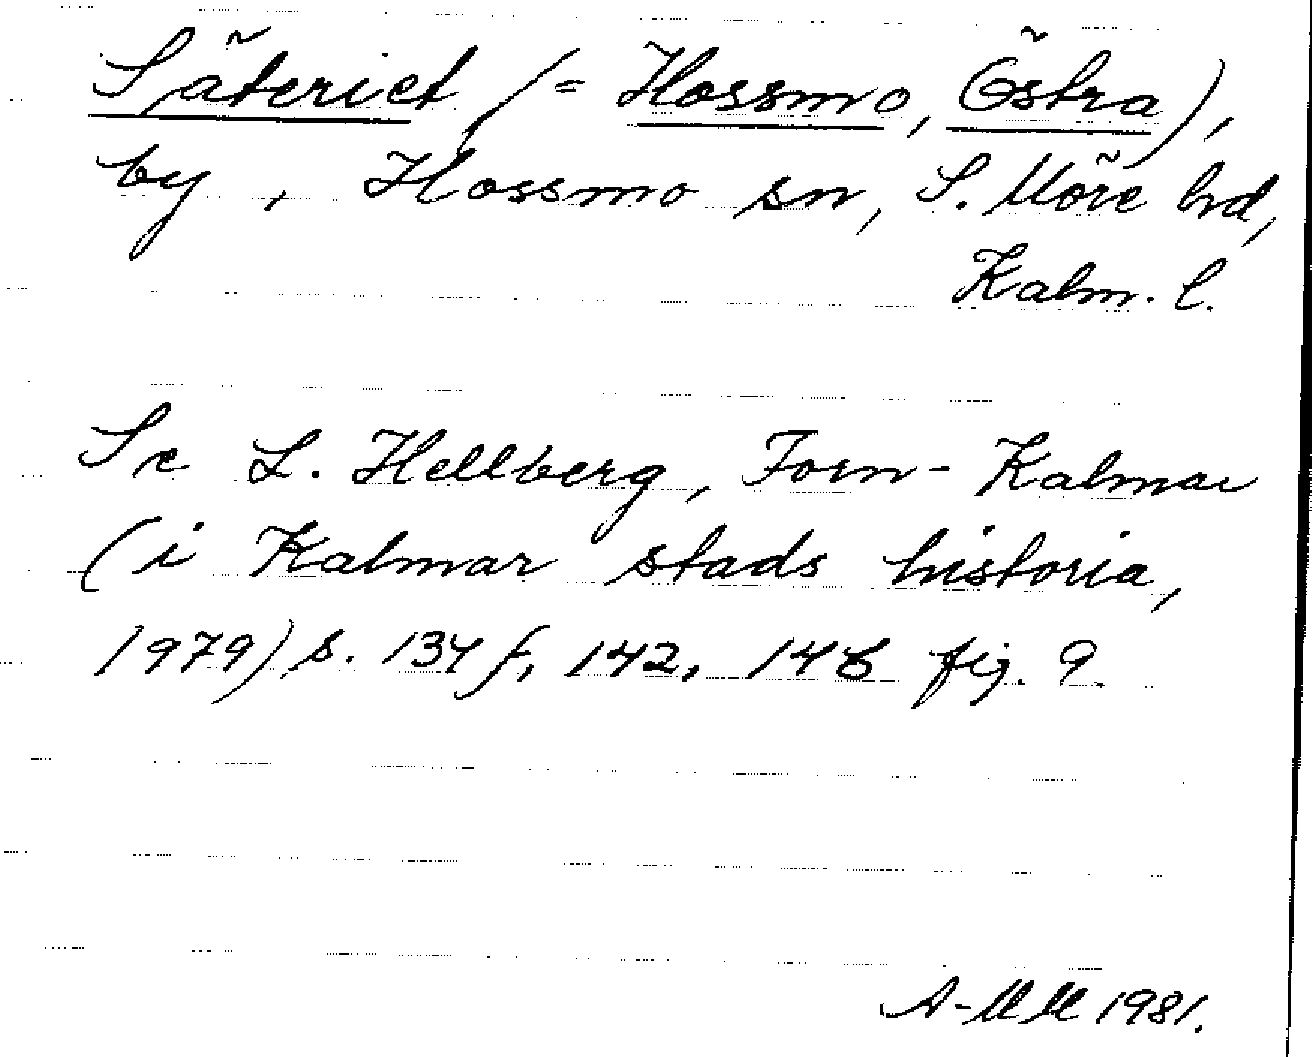 Säteriet (= Hossmo, Östra),
by, Hossmo sn, S. Möre hd,
Kalm. l.
Se L. Hellberg, Forn-Kalmar
(i Kalmar stads historia,
1979) s. 134 f, 142, 146 fig. 9.
A-MM 1981.